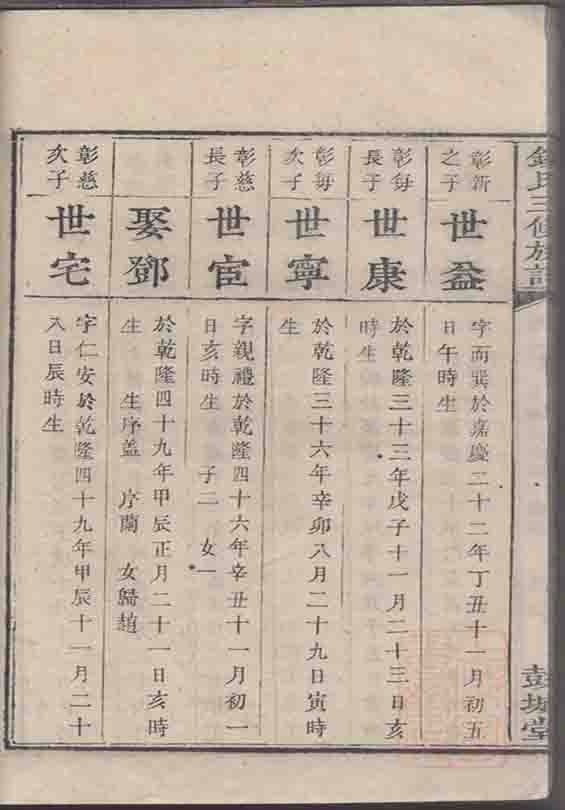 錢氏三修族譜
彭城堂
彰新
之子
世益
字而巽於嘉慶二十二年丁丑十一月初五
日午時生
彰每
長子
世康
於乾隆三十三年戊子十一月二十三日亥
時生
彰每
次子
世寧
於乾隆三十六年辛卯八月二十九日寅時
生
彰慈
長子
世宦
字親禮於乾隆四十六年辛丑十一月初一
日亥時生 子二 女一
娶鄧
於乾隆四十九年甲辰正月二十一日亥時
生 生序蓋 序蘭 女歸趙
彰慈
次子
世宅
字仁安於乾隆四十九年甲辰十一月二十
八日辰時生